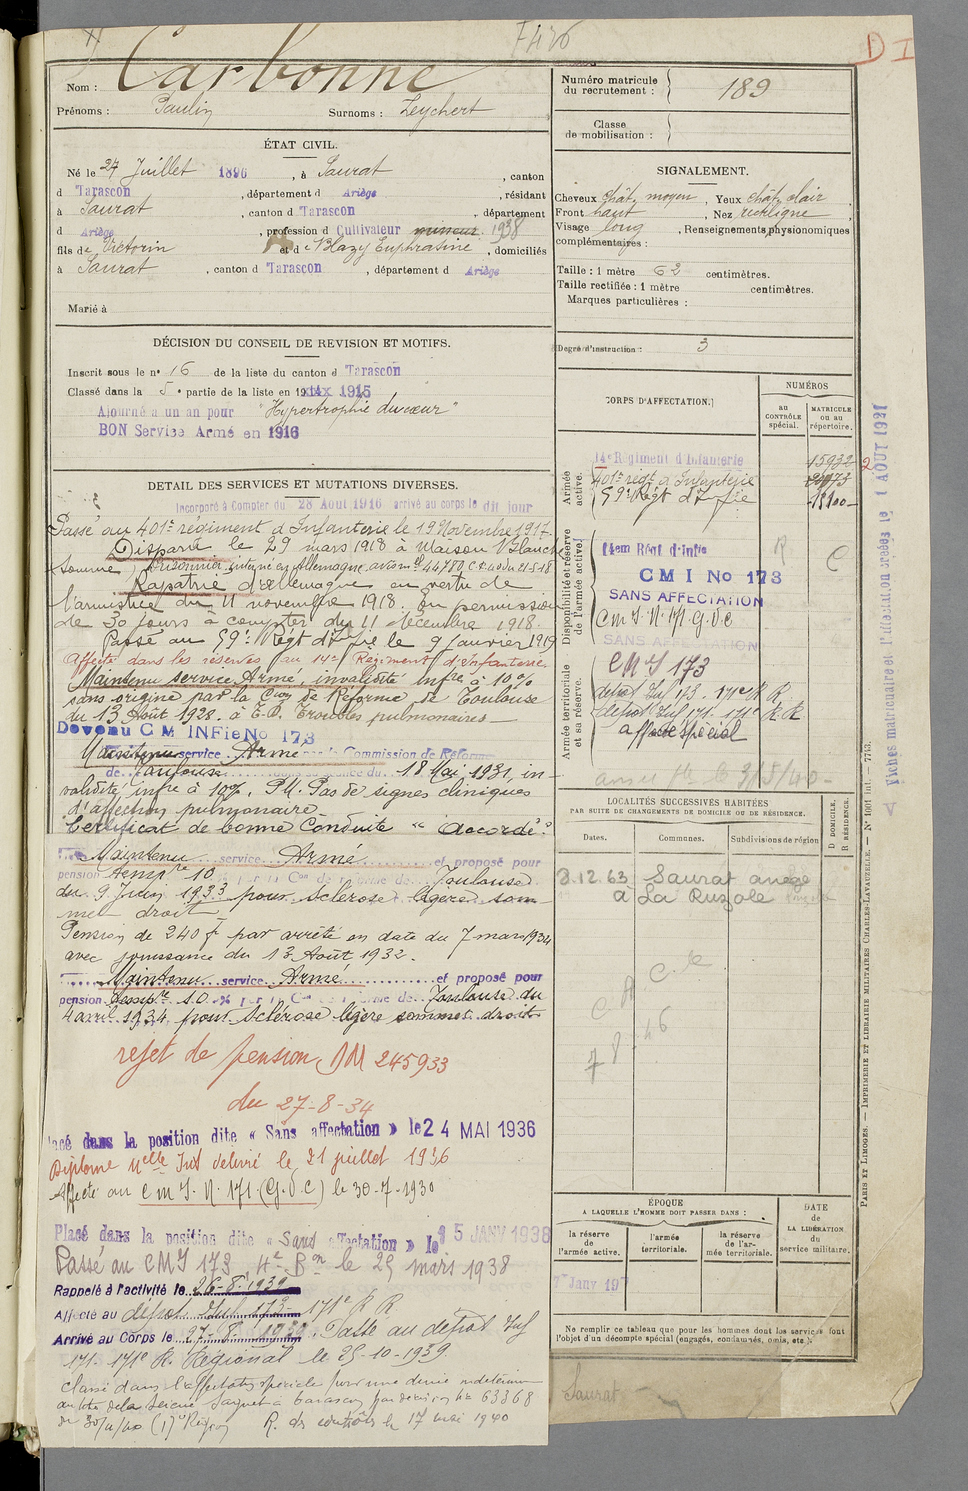 F426
D I
Nom : Carbonne
Prénoms : Paulin Surnoms : Leychert
ÉTAT CIVIL.
Né le 27 Juillet 1896, à Saurat, canton
d Tarascon, département d Ariège, résidant
à Saurat, canton d Tarascon, département
d Ariège, profession d Cultivateur mineur 1938
fils de Victorin et de Blazy Euphrasine, domiciliés
à Saurat, canton d Tarascon, département d Ariège
Marié à
DÉCISION DU CONSEIL DE REVISION ET MOTIFS.
Inscrit sous le n° 16 de la liste du canton d Tarascon
Classé dans la 5e partie de la liste en 1915
Ajourné à un an pour "Hypertrophie du cœur"
BON Service Armé en 1916
DETAIL DES SERVICES ET MUTATIONS DIVERSES.
Incorporé à Compter du 28 Aout 1916 arrivé au corps le dit jour
Passé au 401e régiment d'Infanterie le 19 Novembre 1917.
Disparu le 29 mars 1918 à Maison Blanche
Somme Prisonnier interné en Allemagne avis n° 44780 C.R. du 21-5-18
Rapatrié d'Allemagne en vertu de
l'armistice du 11 novembre 1918. En permission
de 30 jours à compter du 11 décembre 1918.
Passé au 59e Régt d'Infie le 9 janvier 1919
Affecté dans les réserves au 14e Régiment d'Infanterie
Maintenu service Armé, invalidité infre à 10%
sans origine par la Con de Réforme de Toulouse
du 13 Août 1928. à E.P. Troubles pulmonaires
Devenu C M INFie No 173
Maintenu service Armé par la Commission de Réforme
de Toulouse séance du 18 Mai 1931, in-
validité infre à 10%. P.M. Pas de signes cliniques
d'affection pulmonaire.
Certificat de bonne Conduite "Accordé"
Maintenu service Armé et proposé pour
pension temp're 10 % par la Con de réforme de Toulouse
du 9 Juin 1933 pour sclérose légère som-
met droit
Pension de 240 f par arrêté en date du 7 mars 1934
avec jouissance du 13 Août 1932.
Maintenu service Armé et proposé pour
pension temp're 10 % par la Con de réforme de Toulouse du
4 avril 1934 pour Sclérose légère sommet droit
rejet de pension DM 245933
du 27-8-34
Placé dans la position dite « Sans affectation » le 24 MAI 1936
Diplome Uelle Ind délivré le 21 juillet 1936
Affecté au C M I. N. 171 (G.V.C) le 30-7-1930
Placé dans la position dite « Sans affectation » le 15 JANV 1938
Passé au CMI 173 4e Bn le 25 mars 1938
Rappelé à l'activité le 26-8-1939
Affecté au dépôt Inf 173 171e R R
Arrivé au Corps le 27-8-1939. Passé au dépôt Inf
171 171e R. Régional le 25-10-1939.
Classé dans l'affectation spéciale pour une durée indéterminée
au titre de la Scierie à Tarascon par décision n° 63368
du 30/4/40 (17e Région) R. des contrôles le 17 mai 1940
Numéro matricule du recrutement : 189
Classe de mobilisation :
SIGNALEMENT.
Cheveux chât. moyen, Yeux chât. clair
Front haut, Nez rectiligne
Visage long, Renseignements physionomiques
complémentaires :
Taille : 1 mètre 62 centimètres.
Taille rectifiée : 1 mètre centimètres.
Marques particulières :
Degré d'instruction : 3
CORPS D'AFFECTATION.
NUMÉROS
AU CONTRÔLE spécial.
MATRICULE ou au répertoire.
Armée active.
14e Régiment d'Infanterie 15932
401e régt d'Infanterie
59e Régt d'Infie
Disponibilité et réserve de l'armée active.
14em Régt d'Infie R C
C M I No 173
SANS AFFECTATION
C m I. N. 171 G.V.C
SANS AFFECTATION
Armée territoriale et sa réserve.
CMI 173
dépôt Inf 173. 171e R R
dépôt Inf 171. 171e R.R
affecté spécial
le 3/5/40
LOCALITÉS SUCCESSIVES HABITÉES
PAR SUITE DE CHANGEMENTS DE DOMICILE OU DE RÉSIDENCE.
Dates. Communes. Subdivisions de région
D DOMICILE, R RÉSIDENCE.
3.12.63 Saurat ariège
à La Ruzole
ÉPOQUE
A LAQUELLE L'HOMME DOIT PASSER DANS :
la réserve de l'armée active.
l'armée territoriale.
la réserve de l'armée territoriale.
DATE de LA LIBÉRATION du service militaire.
Ne remplir ce tableau que pour les hommes dont les services font
l'objet d'un décompte spécial (engagés, condamnés, omis, etc.).
Saurat
Fiches matriculaire et d'affectation créées le 1 AOUT 1931
PARIS ET LIMOGES. — IMPRIMERIE ET LIBRAIRIE MILITAIRES CHARLES-LAVAUZELLE. — N° 1001 int. — 7743.